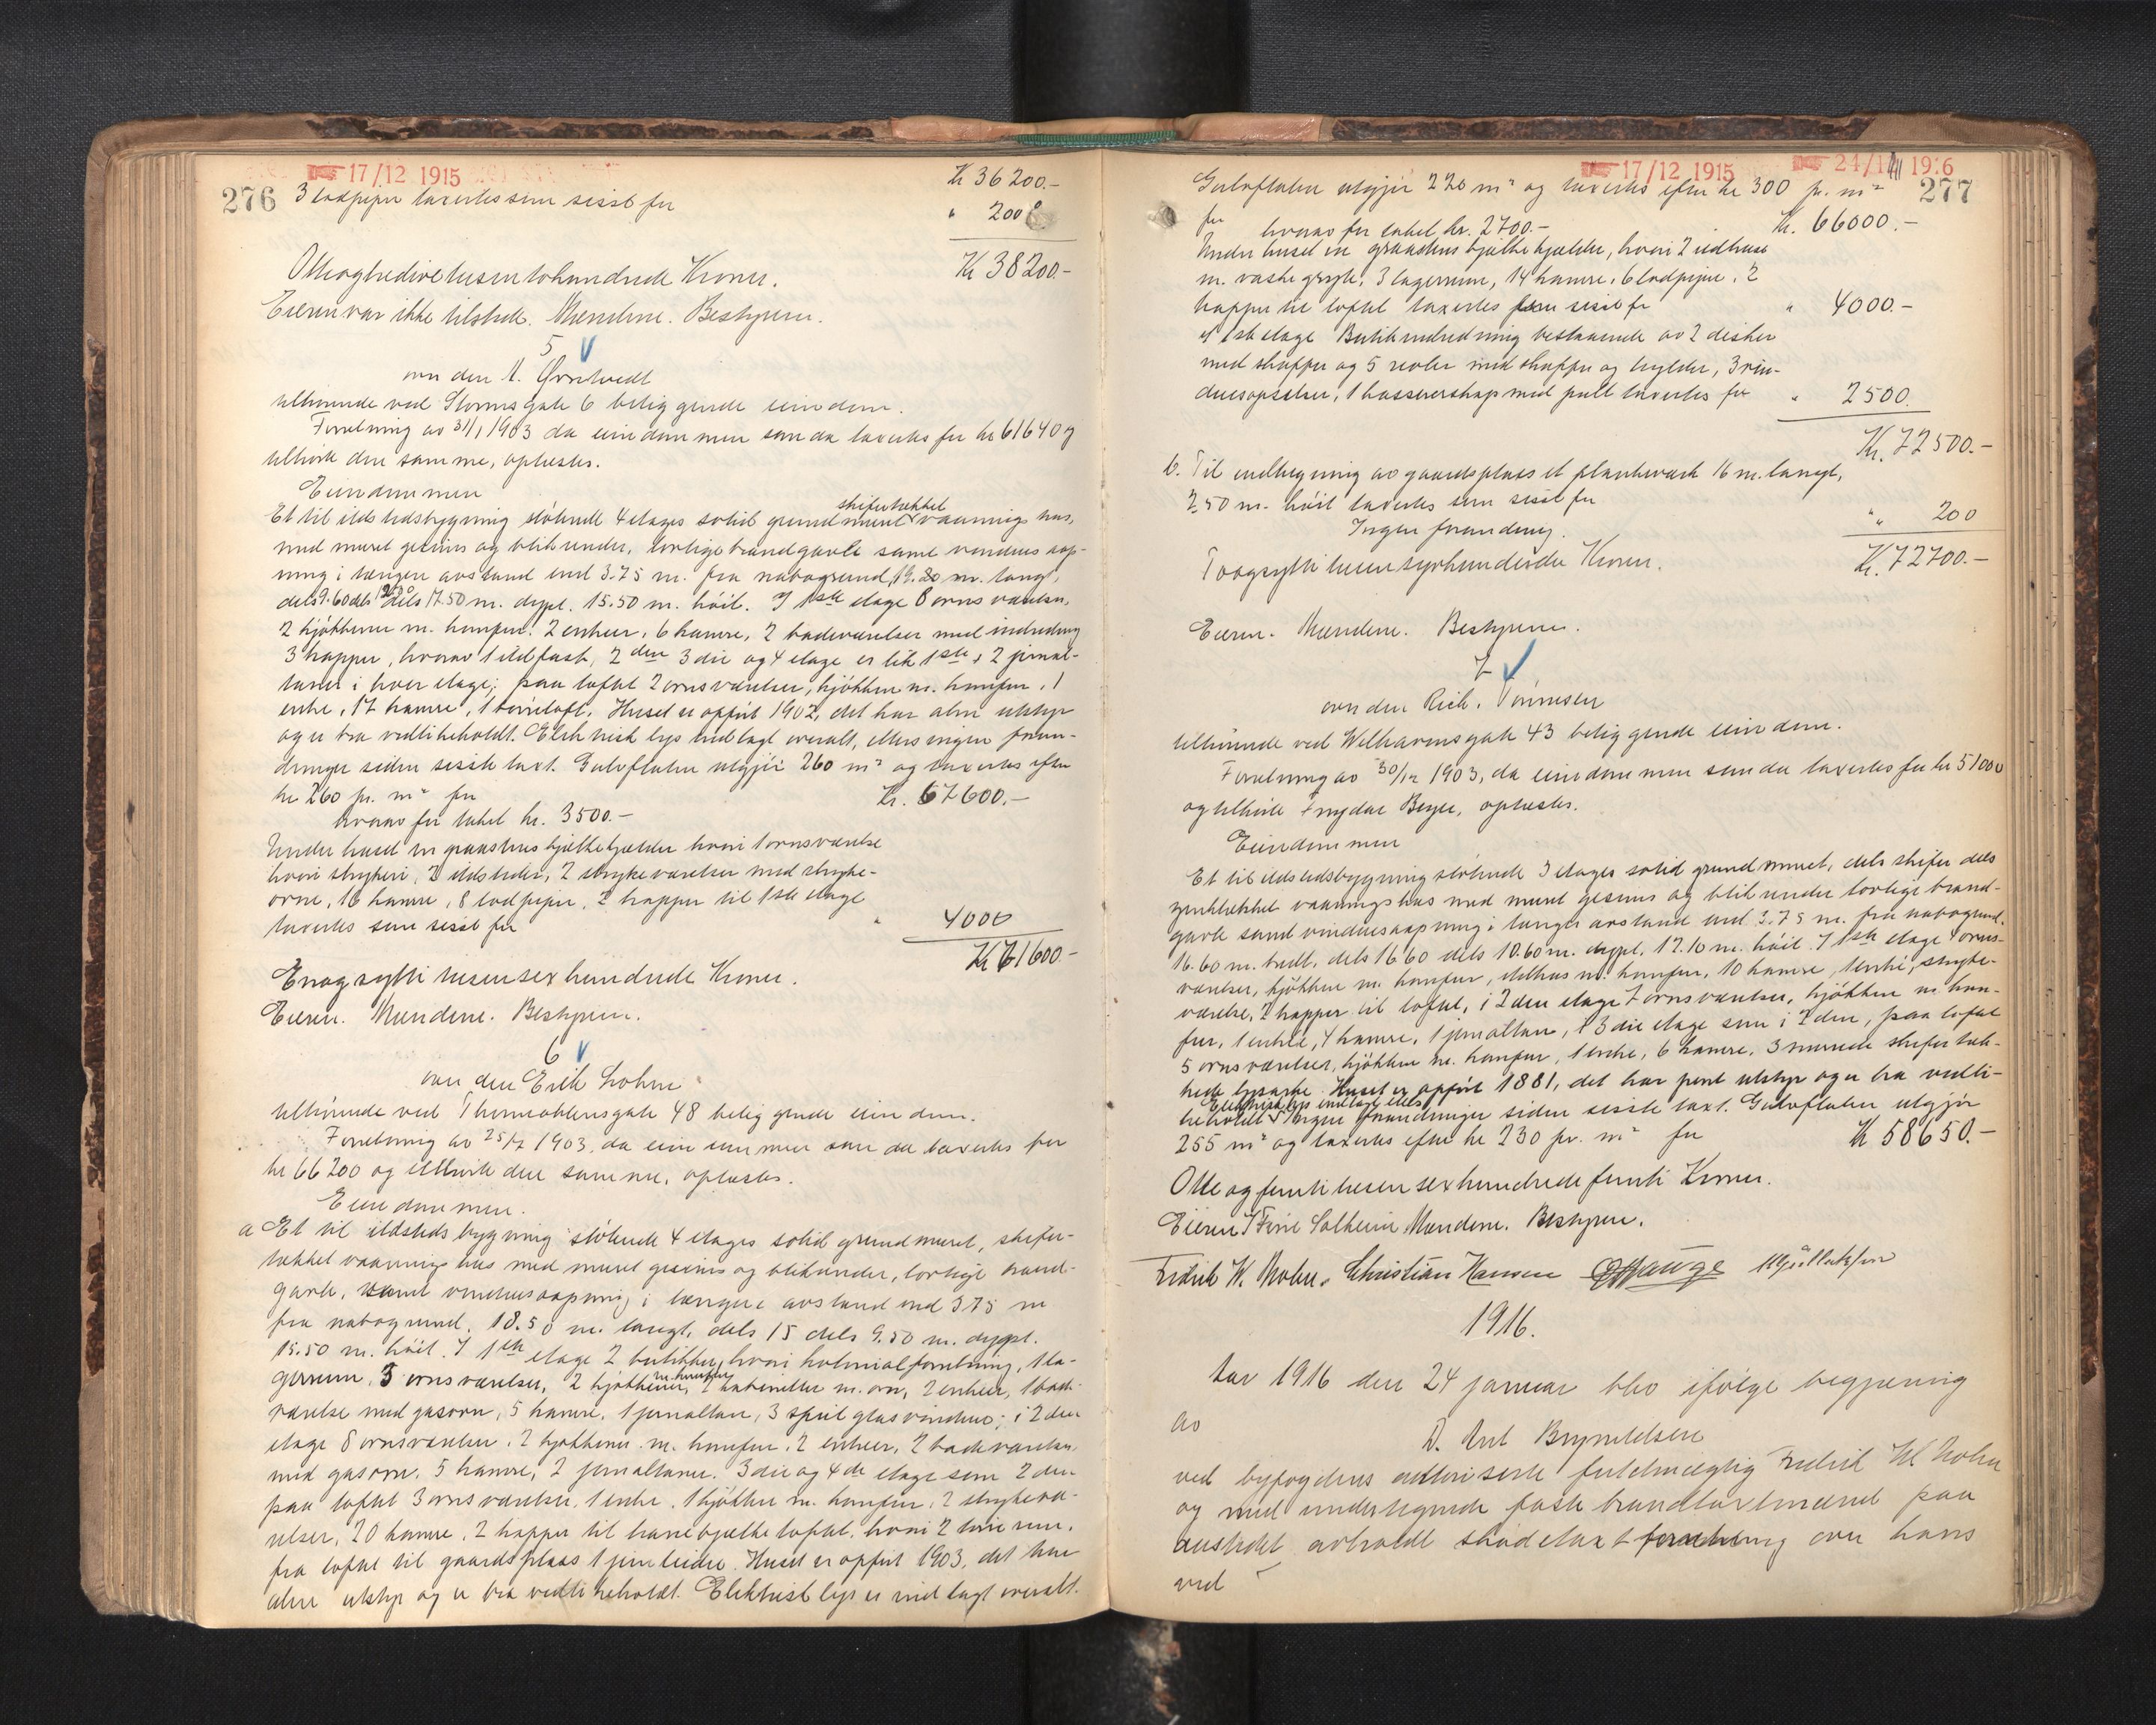 17/12 1915
276
3 lodpiper taxertes som sisst for
Kr 36200.-
" 2000
Kr 38200.-
Otteogtredive tusen tohundrede Kroner.
Eieren var ikke tilstede. Mændene. Bestyreren.
5
over den A. Ørstvedt
tilhørende ved Stormsgate 6 beliggende eiendom.
Forretning av 31/1 1903 da eiendommen som da taxertes for kr 61640 og
tilhørte den samme, oplæstes.
Eiendommen
Et til ildstedsbygning stötende 4 etages solid grundmuret skifertækket vaaningshus,
med muret gesims og blikrender, lovlige brandgavle samt vinduesaap-
ning i længere avstand end 3.75 m. fra nabogrund, 19.20 m. langt,
dels 9.60 dels dels 17.50 m. dypt. 15.50 m. höit. I 1ste etage 8 ovnsværelser,
2 kjökkener m. komfur. 2 entreer, 6 kamre, 2 badeværelser med indredning
3 trapper, hvorav 1 ildfast, 2den 3die og 4 etage er lik 1ste, 2 jernal-
taner i hver etage; paa loftet 2 ovnsværelser, kjökken m. komfur, 1
entre, 17 kamre, 1 törreloft. Huset er opfört 1902, det har alm utstyr
og er bra vedlikeholdt. Elektrisk lys indlagt overalt, ellers ingen foran-
dringer siden sisste taxt. Gulvflaten utgjör 260 m² og taxertes efter
kr 260 pr. m² for
Kr. 67600.-
hvorav for taket kr. 3500.-
Under huset en graastens bjælkekjælder hvori 1 ovnsværelse
hvori strykeri, 2 ildsteder, 2 strykeværelser med stryke-
ovne, 16 kamre, 8 lodpiper, 2 trapper til 1ste etage
taxertes som sisst for
" 4000
Kr 71600.-
Enogsytti tusen sexhundrede Kroner.
Eieren. Mændene. Bestyreren.
6
over den Erik Lohne
tilhörende ved Thormöhlensgate 48 beliggende eiendom.
Forretning av 25/7 1903, da eiendommen som da taxertes for
kr 66200 og tilhörte den samme, oplæstes.
Eiendommen.
a Et til ildstedsbygning stötende 4 etages solid grundmuret, skifer-
tækket vaaningshus med muret gesims og blikrender, lovlige brand-
gavle, samt vinduesaapning i længere avstand end 3.75 m
fra nabogrund. 18.50 m. langt, dels 15 dels 9.50 m. dypt.
15.50 m. höit. I 1ste etage 2 butikker, hvori kolonialforretning, 1 la-
gerrum, 3 ovnsværelser, 2 kjökkener, m. komfur 2 kabinetter m. ovn, 2 entreer, 1 bade-
værelse med gasovn, 5 kamre, 1 jernaltan, 3 speilglasvinduer; i 2den
etage 8 ovnsværelser, 2 kjökkener m. komfur, 2 entreer, 2 badeværelser
med gasovn, 5 kamre, 2 jernaltaner. 3die og 4de etage som 2den
paa loftet 3 ovnsværelser, 1 entre, 1 kjökken m. komfur, 2 strykevæ-
relser, 20 kamre, 2 trapper til hanebjælkeloftet, hvori 2 törrerum,
fra loftet til gaardsplass 1 jernleider. Huset er opfört 1903, det har
alm utstyr og er bra vedlikeholdt. Elektrisk lys er indlagt overalt.
17/12 1915
24/1 1916
277
Gulvflaten utgjör 220 m² og taxertes efter kr 300 pr. m²
for
Kr. 66000.-
hvorav for taket kr. 2700.-
Under huset en graastens bjælkekjælder, hvori 2 ildhuse
m. vaskegryte, 3 lagerrum, 14 kamre, 6 lodpiper, 2
trapper til loftet taxertes som sisst for
" 4000.-
I 1ste etage Butikindredning bestaaende av 2 disker
med skuffer og 5 reoler med skuffer og hylder, 3 vin-
duesopsatser, 1 kassererskap med pult taxertes for
" 2500.
Kr. 72500.-
b. Til indhegning av gaardsplass et plankeværk 16 m. langt,
2.50 m. höit taxertes som sisst for
" 200
Ingen forandring.
Kr. 72700.-
Toogsytti tusen syvhundrede Kroner.
Eieren. Mændene. Bestyreren.
7
over den Rich. Tönnesen
tilhörende ved Welhavensgate 43 beliggende eiendom.
Forretning av 30/12 1903, da eiendommen som da taxertes for kr 51000
og tilhörte Beyer, oplæstes.
Eiendommen
Et til ildstedsbygning stötende 3 etages solid grundmuret, dels skifer dels
zinktækket vaaningshus med muret gesims og blikrender lovlige brand-
gavle samt vinduesaapning i længer avstand end 3.75 m. fra nabogrund.
16.60 m. bredt, dels 16.60 dels 10.60 m. dypt. 12.10 m. höit. I 1ste etage ovns-
værelser, kjökken m. komfur, ildhus m. komfur, 10 kamre, 1 entre, stryke-
værelse, 2 trapper til loftet, i 2den etage 7 ovnsværelser, kjökken m. kom-
fur, 1 entre, 4 kamre, 1 jernaltan, i 3die etage som i 2den, paa loftet
5 ovnsværelser, kjökken m. komfur, 1 entre, 6 kamre, 3 murede skifertæk-
kede Huset er opfört 1881, det har pent utstyr og er bra vedli-
Elektrisk lys indlagt ellers
keholdt ingen forandringer siden sisste taxt. Gulvflaten utgjör
255 m² og taxertes efter kr 230 pr. m² for
Kr 58650.-
Otte og femti tusen sexhundrede femti Kroner.
Eieren v/ Solheim Mændene. Bestyreren.
Fredrik W. Mohn. Christian Hansen
1916.
Aar 1916 den 24 januar blev ifölge begjæring
av
D. Ant Brynildsen
ved byfogdens autoriserte fuldmægtig Fredrik W Mohn
og med undertegnede faste brandtaxtmænd paa
aastedet avholdt skadetaxtforretning over hans
ved